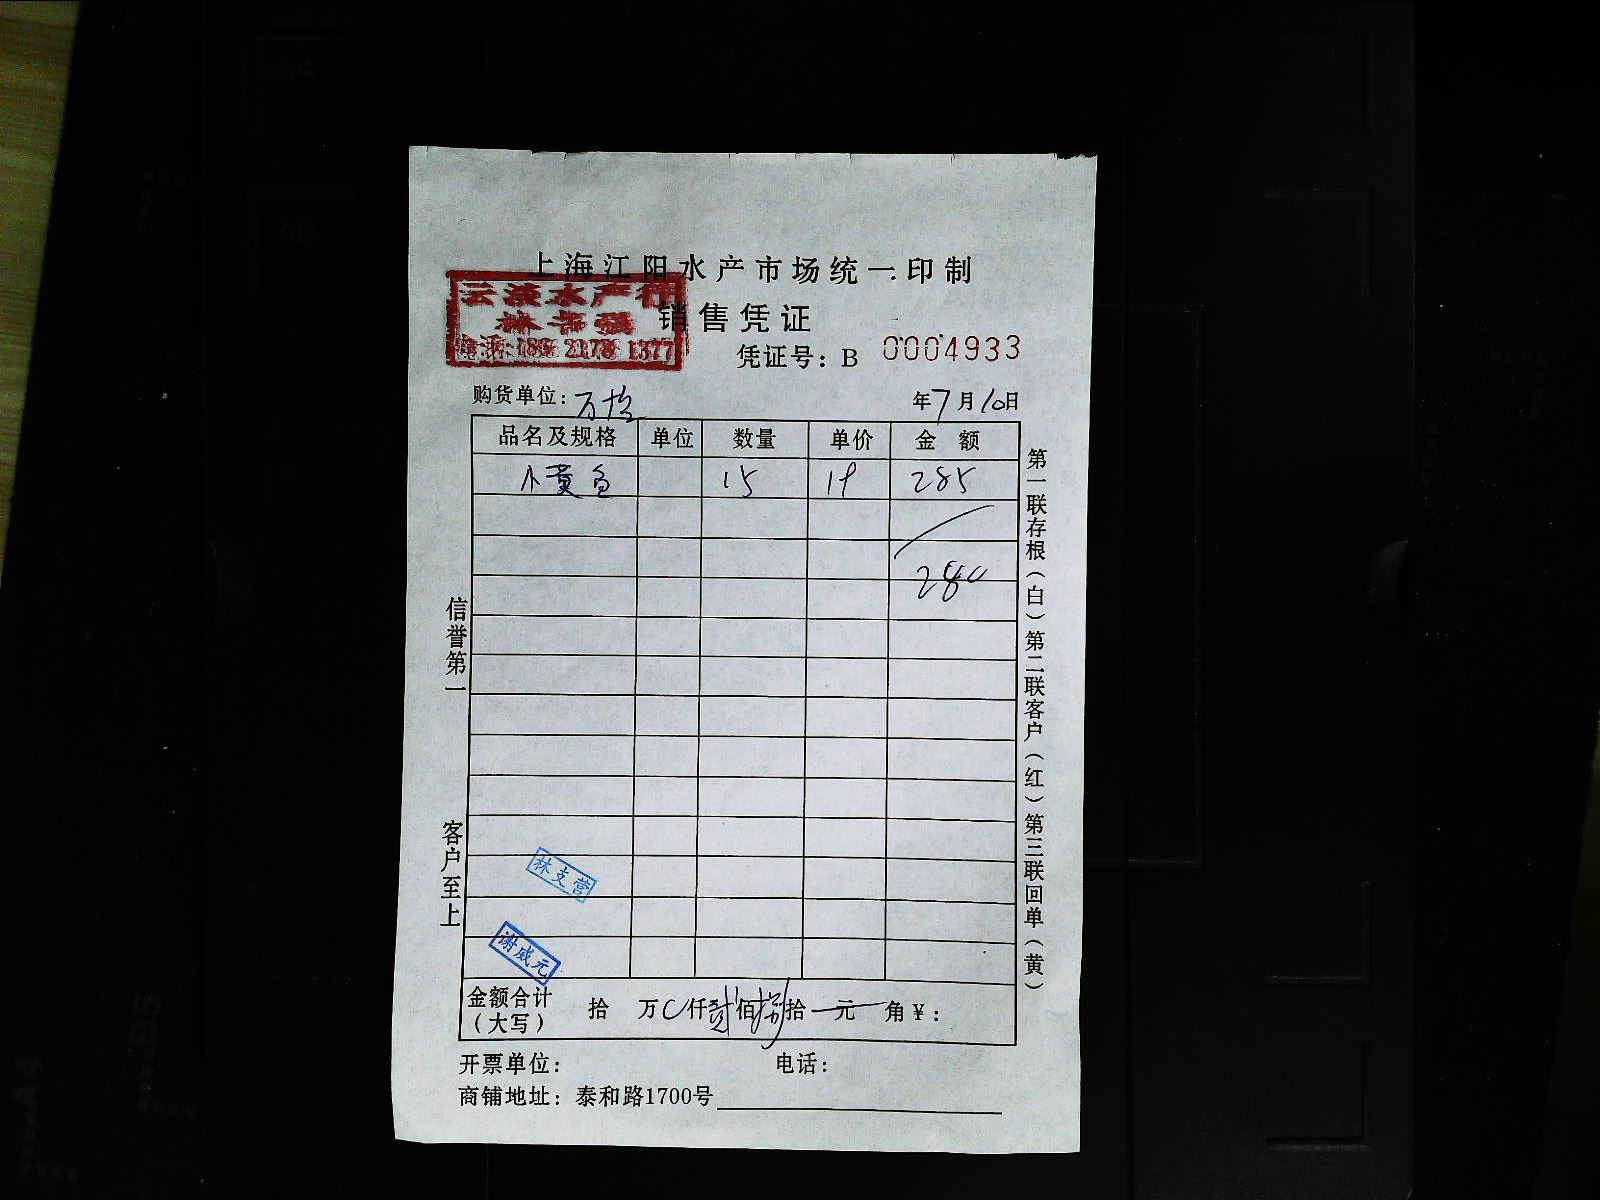 上海江阳水产市场统一印制
云淡水产行
销售凭证
凭证号：B 0004933
购货单位：万 年7月10日
品名及规格 单位 数量 单价 金额
小黄鱼 15 19 285
280
信誉第一
客户至上
第一联存根（白）第二联客户（红）第三联回单（黄）
林支营
谢威元
金额合计（大写） 拾 万 0仟贰佰捌拾 元 角¥：
开票单位： 电话：
商铺地址：泰和路1700号